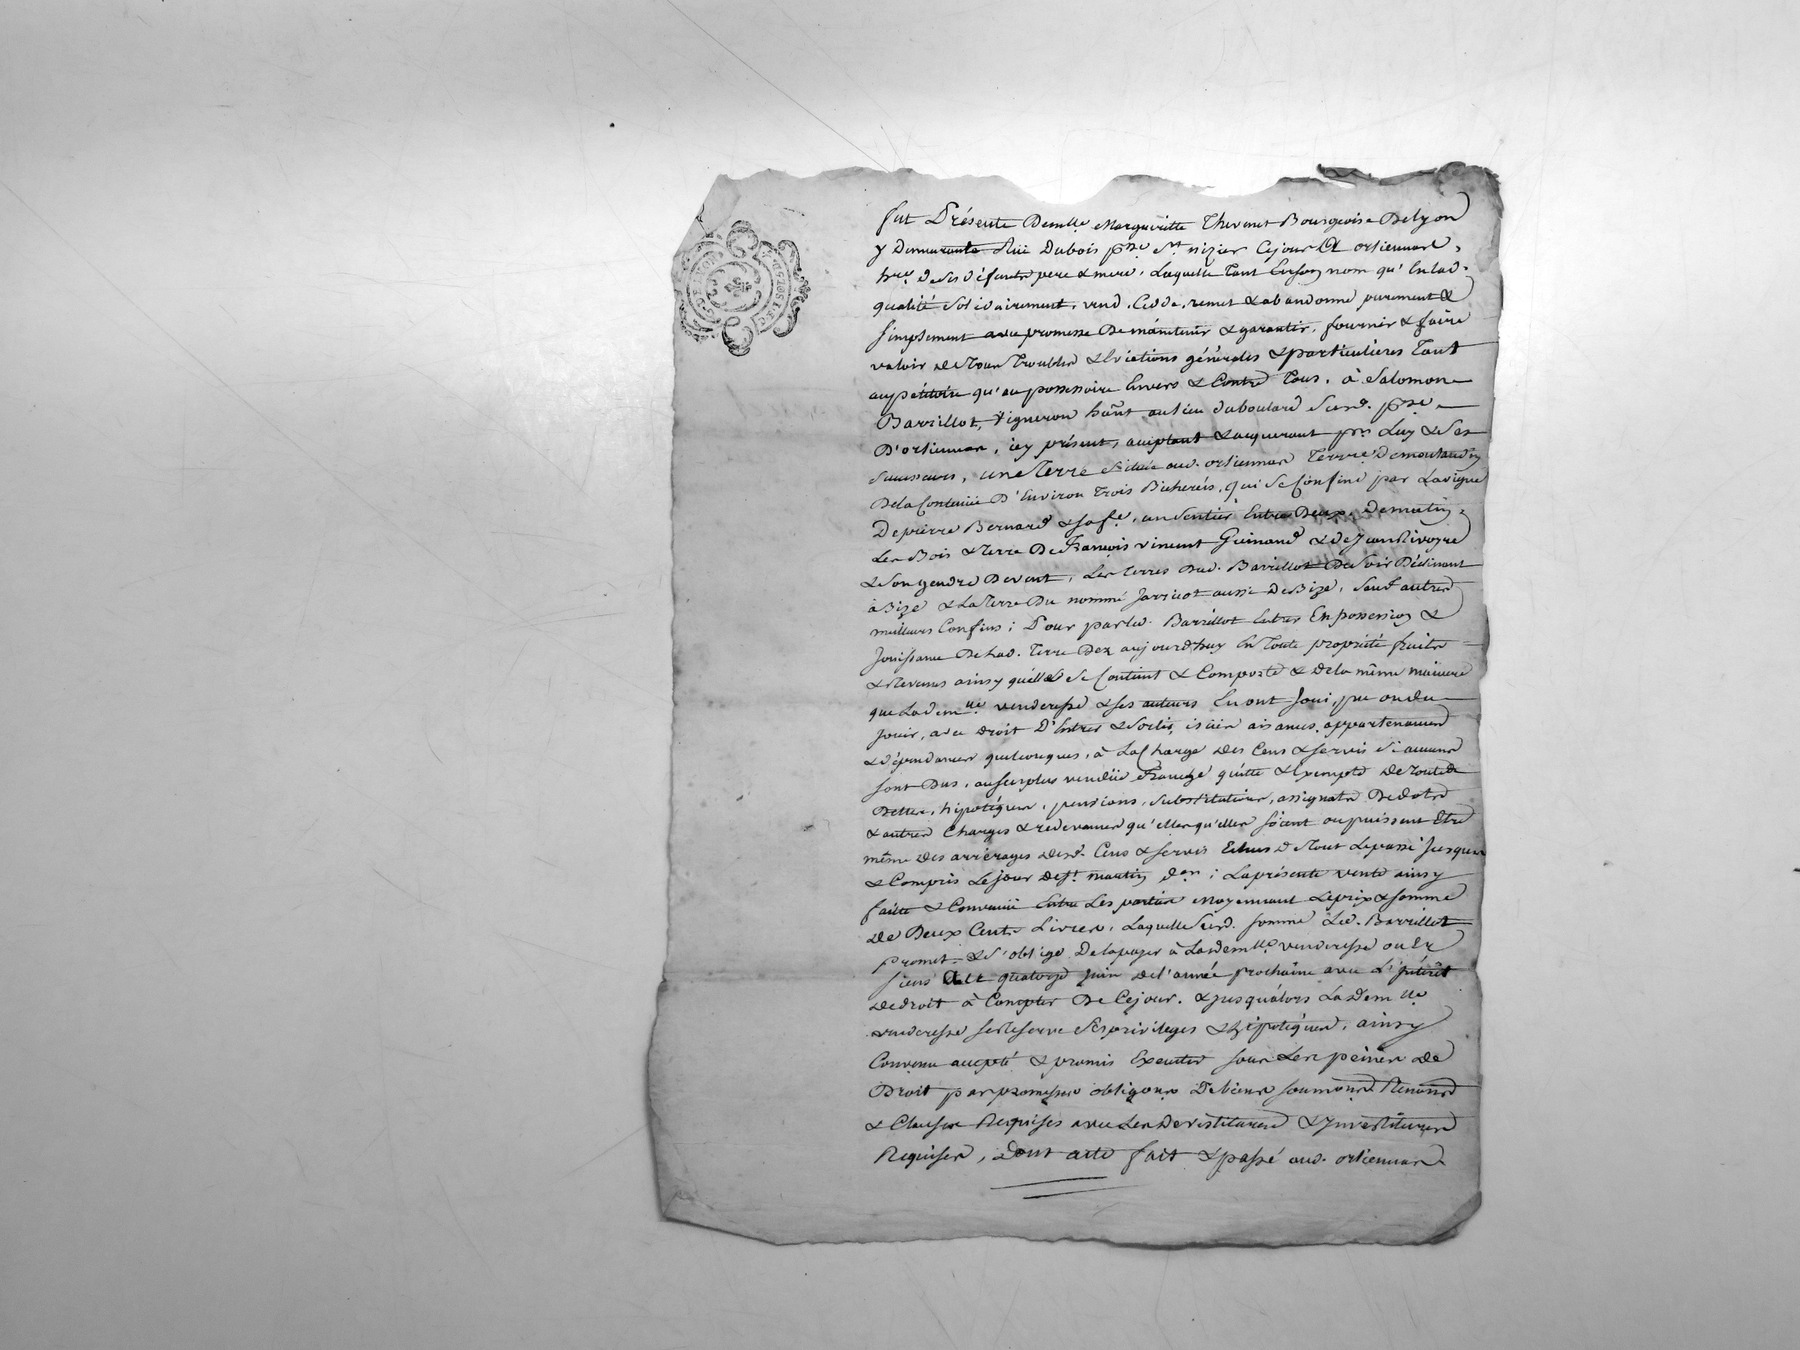 fut Présente Demlle Margueritte Thevenet Bourgeoise Delyon
y Demeurante Rüe Dubois psse St nizier Cejour A ortiennar,
hre deses défunts pere & mere, Laquelle tant Enson nom qu'Enlad.
qualité Solidairement, vend, Cedde, remet & abandonne purement &
simplement avec promesse De maintenir & garantir, fournir & faire
valoir de Tous Troubles & Evictions générales & particulieres Tant
aupétitoire qu'au possessoire Envers & Contre Tous, à Salomon
Barrillot, Vigneron hãnt aulieu duboulard Susd. psse
D'ortiennar, icy présent, acceptant & acquerant pr Luy & Ses
successeurs, une Terre Scituée aud. ortiennar Terroir
Dela Contenüe D'Environ Trois Bicherées, qui Se Confine par La vigne
De pierre Bernard & safe, un Sentier Entre Deux, De matin,
Les Bois & terre De François vincent Guinand & de Jean Rivoyre
& Son gendre De vent, Les terres Dud. Barrillot De Soir Déclinant
à Bize & La Terre Du nommé Jarricot aussi De Bize, Sauf autres
meilleurs Confins; Pour par led. Barrillot Entrer En possession &
Jouissance De Lad. terre Dez aujourd'huy En Toute propriété fruits
& Revenus ainsy qu'elle Se Contient & Comporte & dela même maniere
que Lademlle venderesse & ses auteurs En ont Joui, pu ou du
Jouir, avec droit D'Entrer & Sortir, aisances, appartenances
& dépendances quelconques, à La Charge des Cens & servis Si aucuns
sont Dus, au surplus vendüe Franche quitte & Exempte De toutes
Dettes, hipotéques, pensions, Substitutions, assignats De dots
& autres Charges & redevances qu'elles qu'elles soient ou puissent Etre
même des arrérages desd. Cens & servis Echus De Tout Le passé Jusques
& Compris Le jour de St martin der; La présente vente ainsy
faite & Convenüe Entre Les parties Moyennant Le prix & somme
De Deux Cents Livres, Laquelle Susd. somme Led. Barrillot
promet & s'oblige De la payer à Lademlle venderesse ou Es
siens Au quatorze Juin de l'année prochaine avec L'intérêt
De droit à Compter De Cejour, & jusqu'alors Lademlle
venderesse se Reserve Ses privileges & hipotéques, ainsy
Convenu accepté & promis Executer sous Les peines de
Droit par promesses obligons De biens soumons Renons
& Clauses Requises avec Les Devestitures & Investitures
Requises, Dont acte fait & passé aud. ortiennar